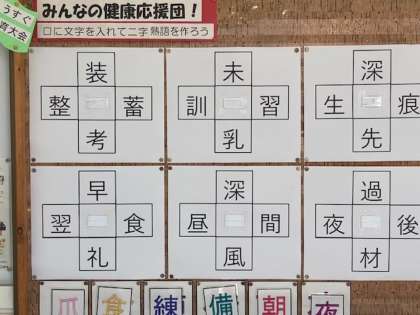 うすぐ
育大会
みんなの健康応援団!
口に文字を入れて二字熟語を作ろう
装
整 蓄
考
未
訓 習
乳
深
生 痕
先
早
翌 食
礼
深
昼 間
風
過
夜 後
材
爪 食 練 備 朝 夜